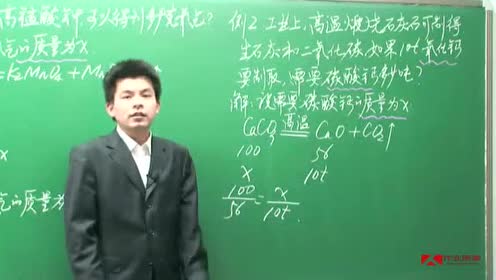 高锰酸钾中可以得到多少克
气的质量为x
=K₂MnO₄+Mn
x
气的质量为
例2 工业上,高温煅烧石灰石可制得
生石灰和二氧化碳,如果10t氧化钙
要制取,需要碳酸钙多少吨?
解:设需要碳酸钙的质量为x
CaCO₃ 高温 CaO+CO₂↑
100 56
x 10t
100/56 = x/10t